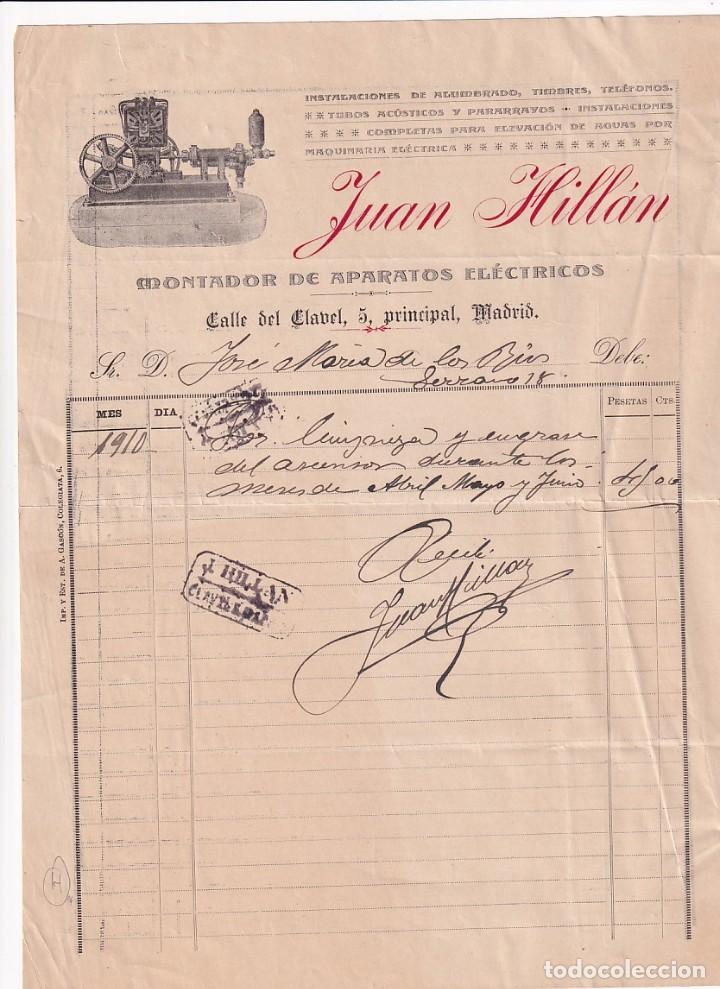 INSTALACIONES DE ALUMBRADO, TIMBRES, TELÉFONOS.
TUBOS ACÚSTICOS Y PARARRAYOS - INSTALACIONES
COMPLETAS PARA ELEVACIÓN DE AGUAS POR
MAQUINARIA ELÉCTRICA
Juan Hillán
MONTADOR DE APARATOS ELÉCTRICOS
Calle del Clavel, 5, principal, Madrid.
Sr. D. José Maria de los Rios Debe:
Serrano 78
MES DIA PESETAS CTS.
1910 Por limpieza y engrase
del ascensor durante los
meses de Abril Mayo y Junio 45,00
Recibí
Juan Hillan
J. HILLAN
CLAVEL
IMP. Y EST. DE A. GASCÓN, COLEGIATA, 6.
H
todocoleccion